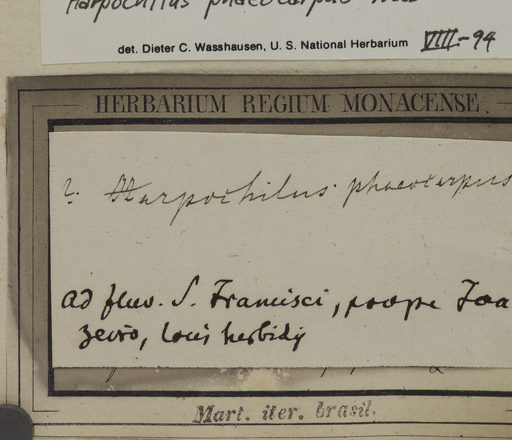 Harpochilus phaeocarpus Nees
det. Dieter C. Wasshausen, U. S. National Herbarium VIII-94
HERBARIUM REGIUM MONACENSE
?. Harpochilus phaeocarpus
ad fluv. S. Francisci, prope Joa
zeiro, locis herbidis
Mart. iter. brasil.